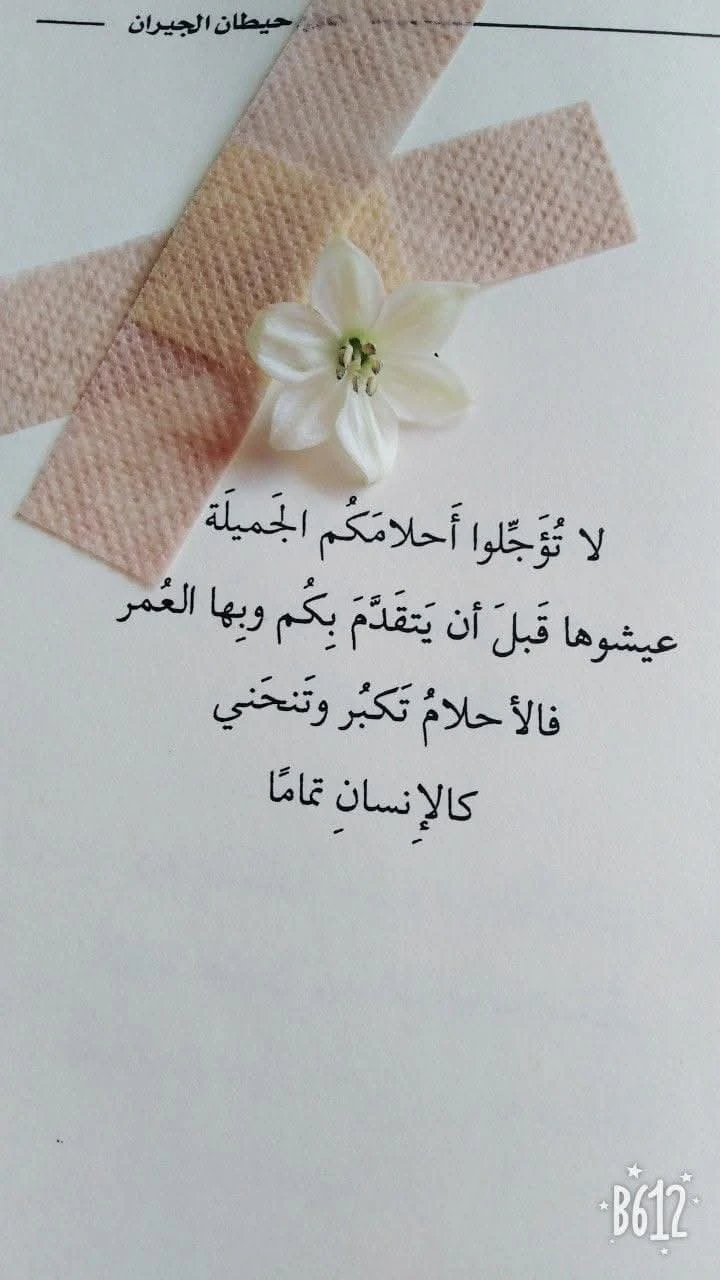 حيطان الجيران
لا تُؤَجِّلوا أَحلامَكُم الجَميلَة
عيشوها قَبلَ أن يَتقَدَّمَ بِكُم وبِها العُمر
فالأحلامُ تَكبُر وتَنحَني
كالإِنسانِ تمامًا
B612